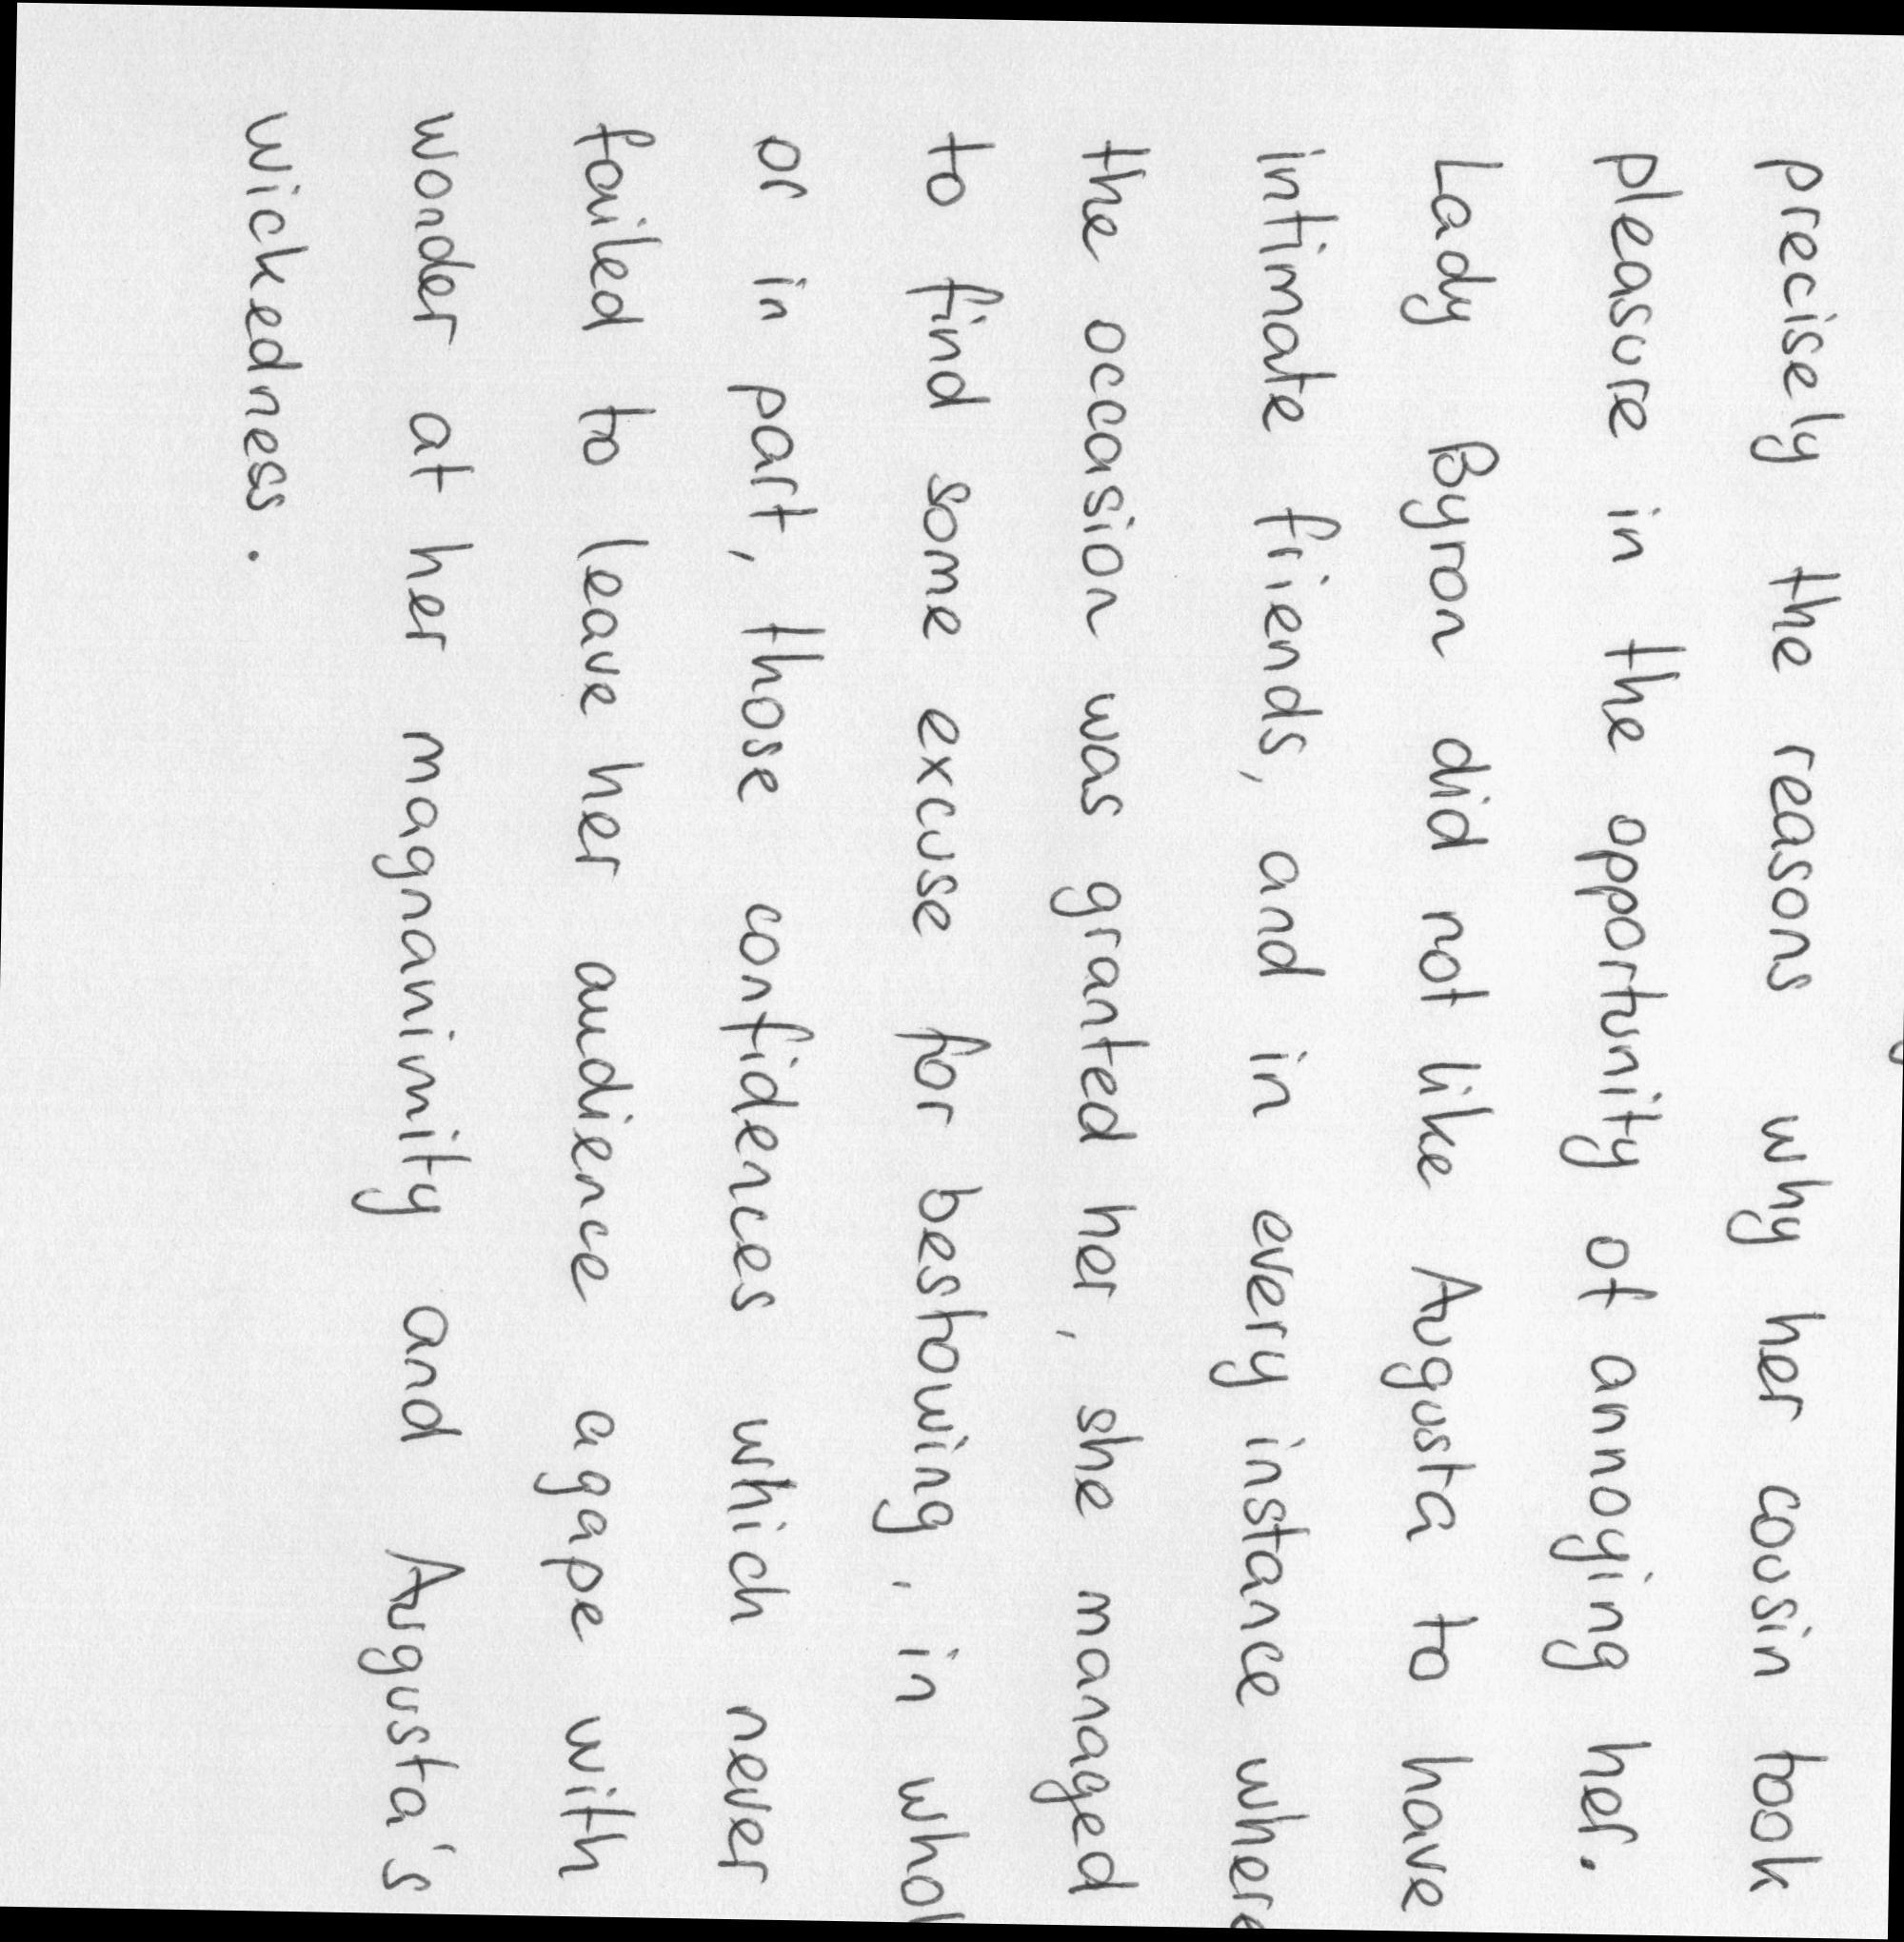 precisely the reasons why her cousin took
pleasure in the opportunity of annoying her.
Lady Byron did not like Augusta to have
intimate friends, and in every instance where
the occasion was granted her, she managed
to find some excuse for bestowing, in whol
or in part, those confidences which never
failed to leave her audience agape with
wonder at her magnanimity and Augusta's
wickedness.